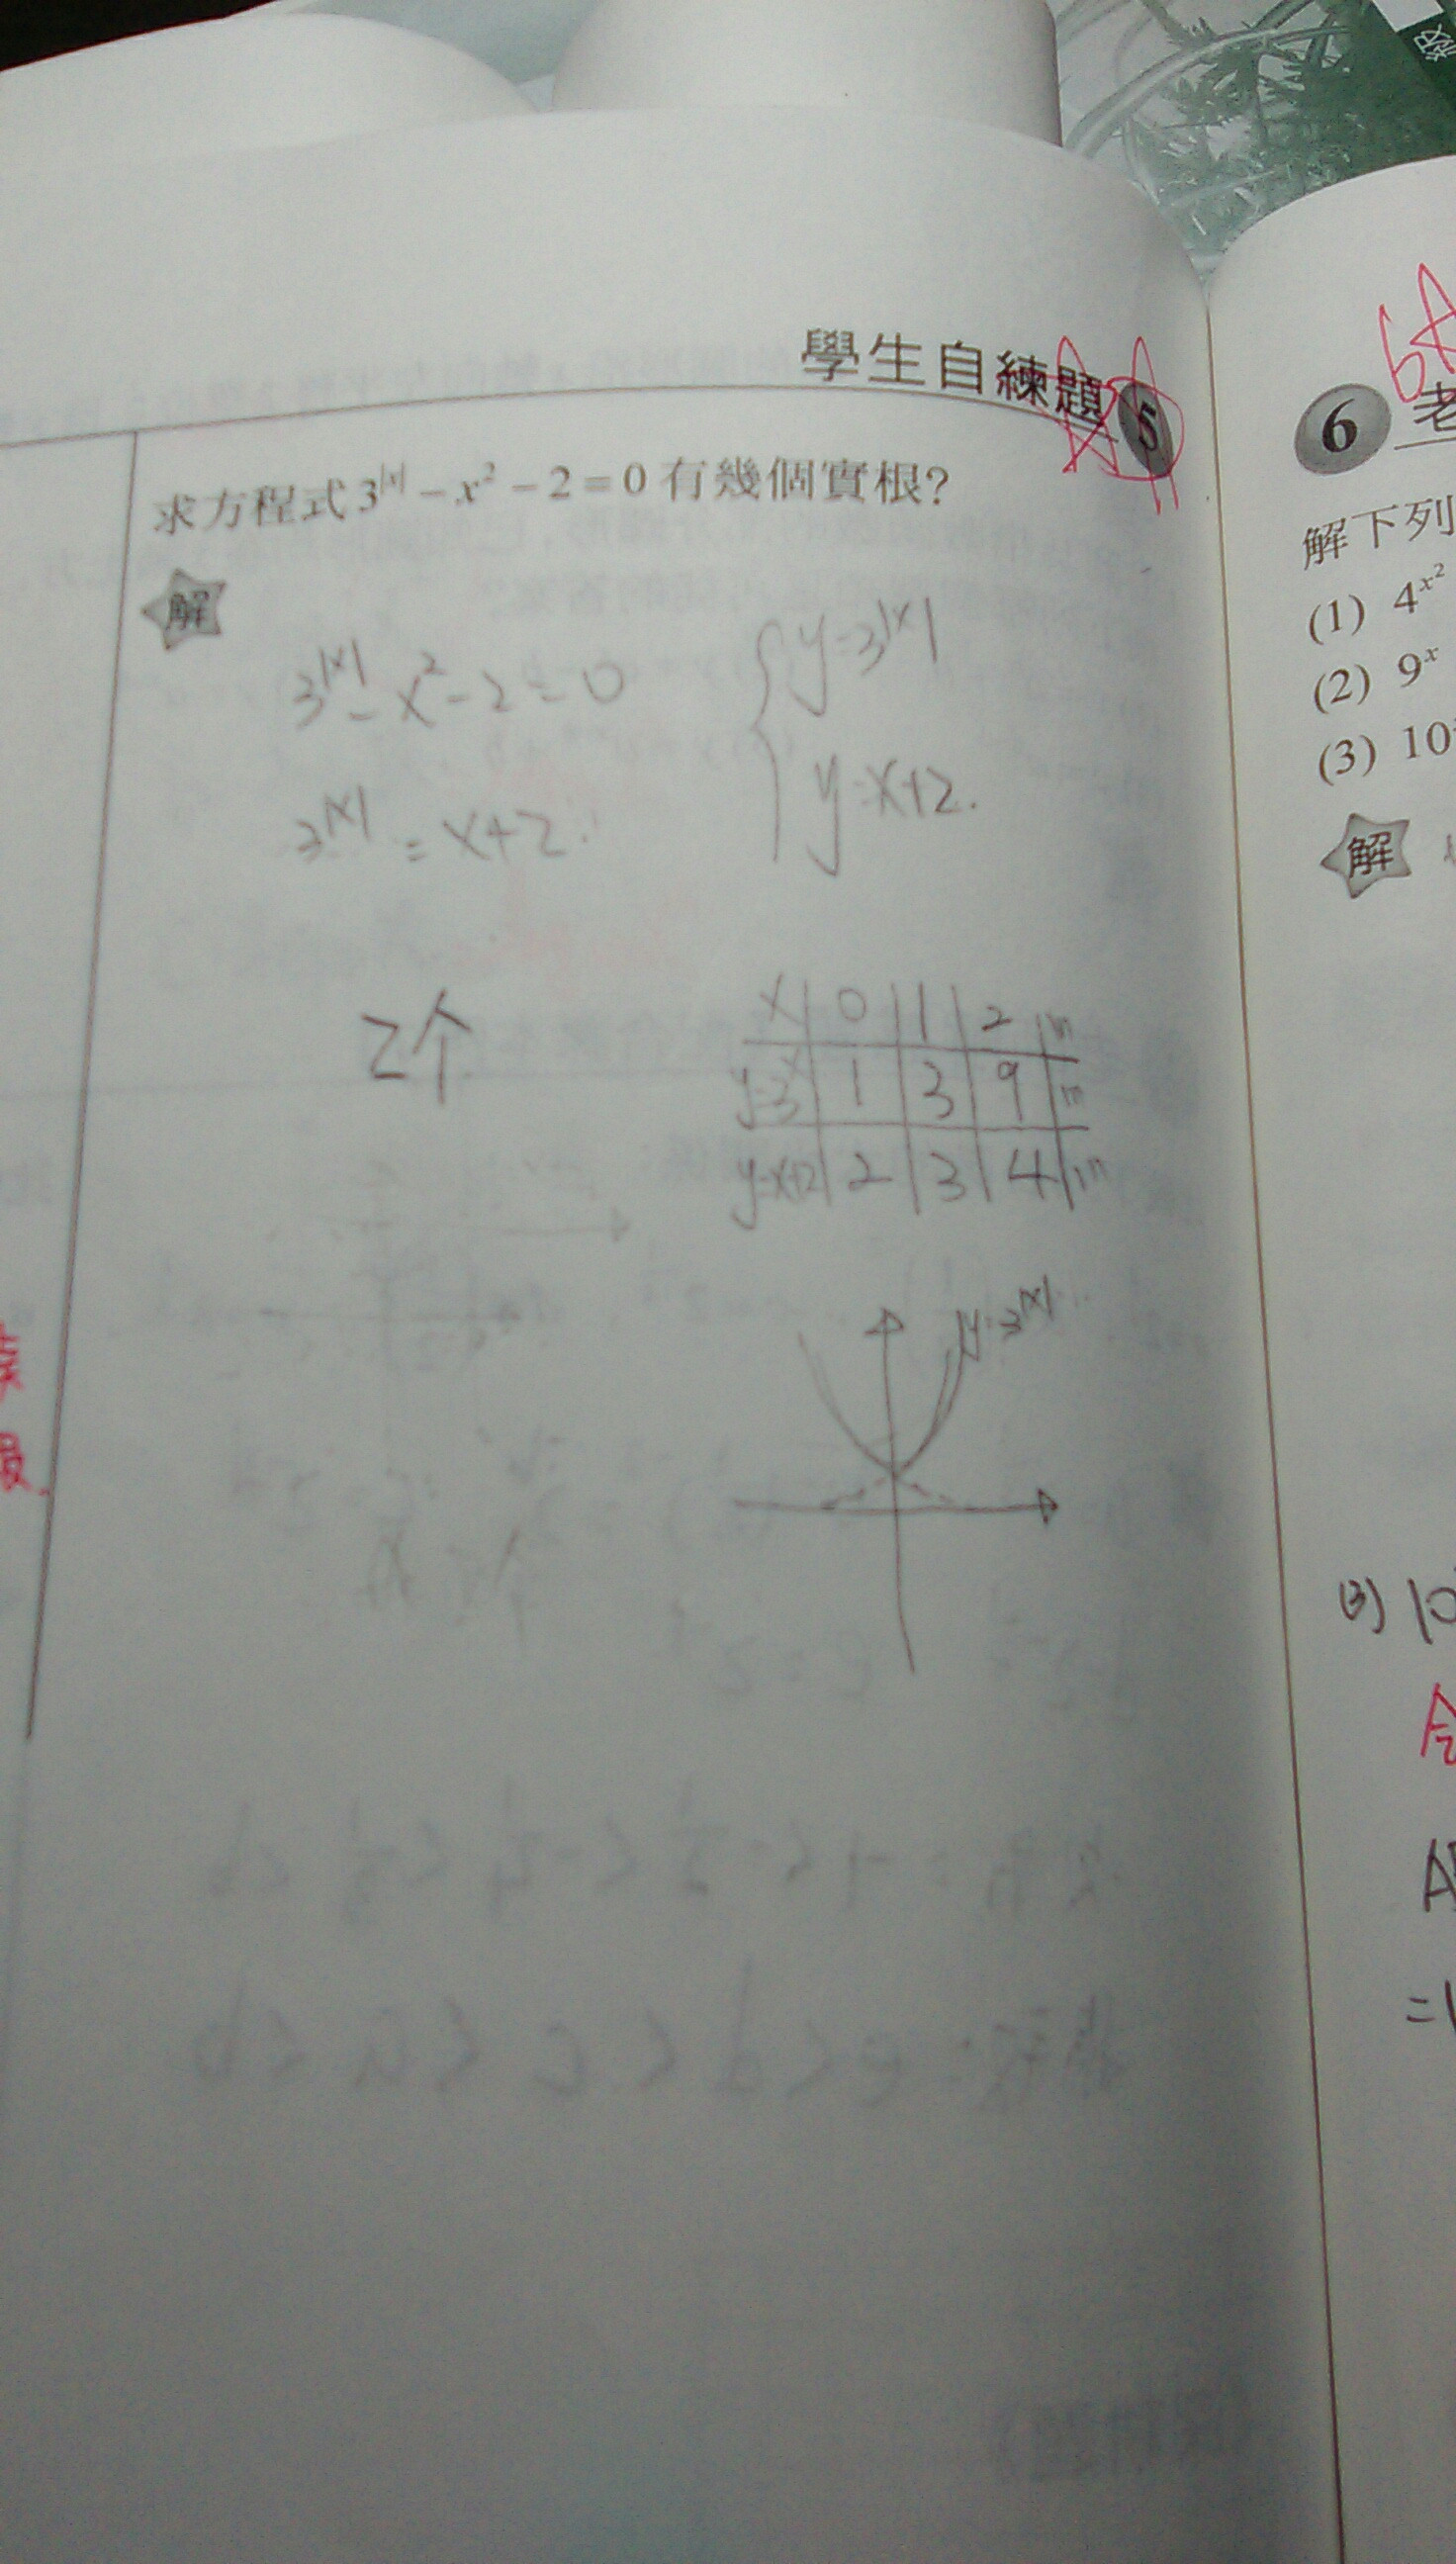 級
學生自練題 5
求方程式 3^|x| − x² − 2 = 0 有幾個實根?
解
3^|x| − x² − 2 = 0
3^|x| = x+2
{ y=3^|x|
y=x+2.
2个
x | 0 | 1 | 2
y=3^x | 1 | 3 | 9
y=x+2 | 2 | 3 | 4
y=3^|x|
6
老
解下列
(1) 4^x²
(2) 9^x
(3) 10
解
(3) 10
令
=1